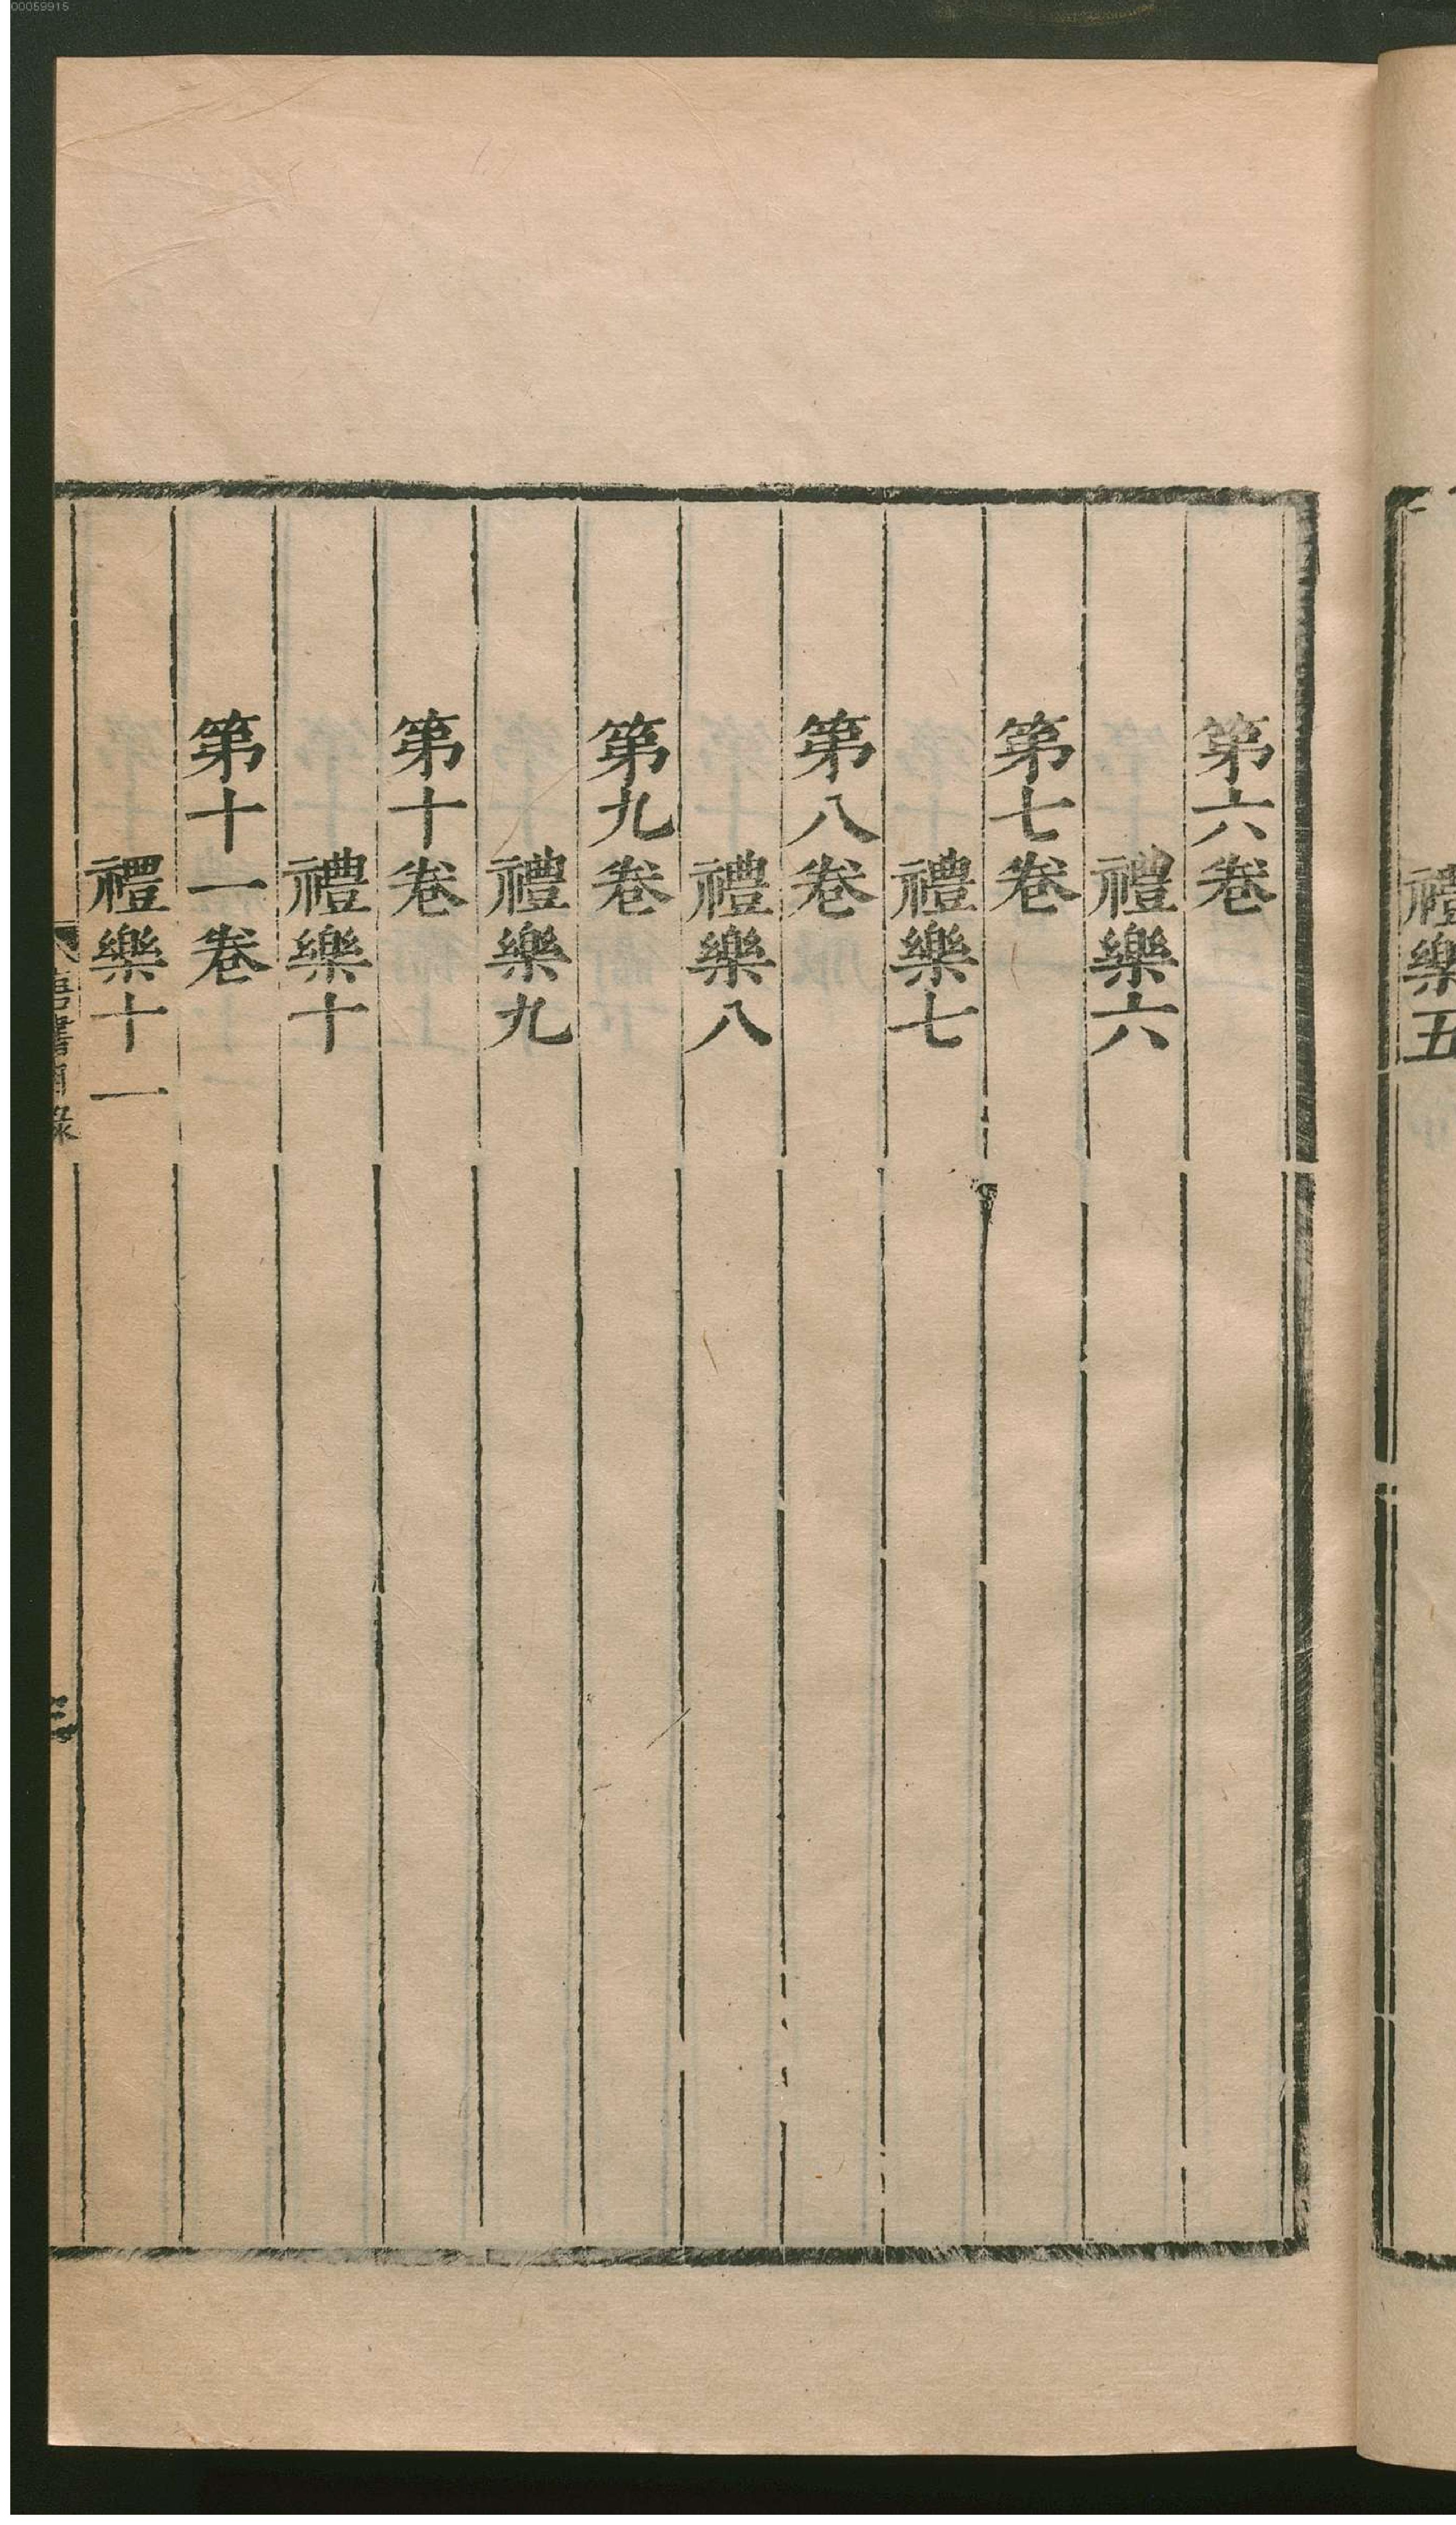 禮樂五
第六卷
禮樂六
第七卷
禮樂七
第八卷
禮樂八
第九卷
禮樂九
第十卷
禮樂十
第十一卷
禮樂十一
唐書目錄
三
00059915